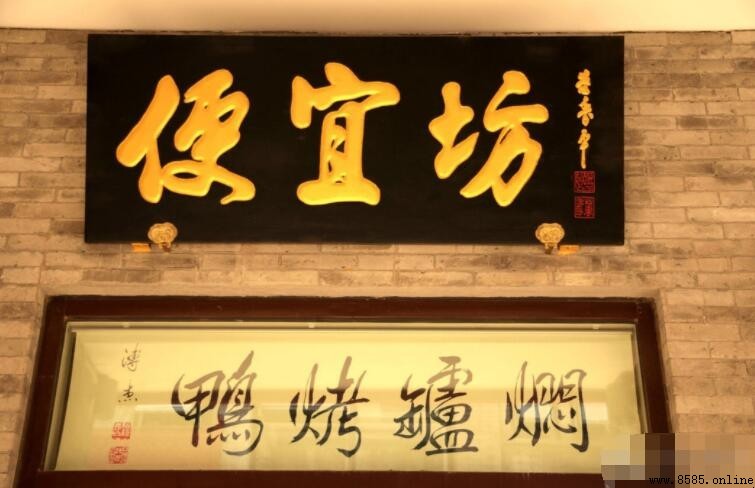 便宜坊
燜鑪烤鴨
溥杰
www.8585.online